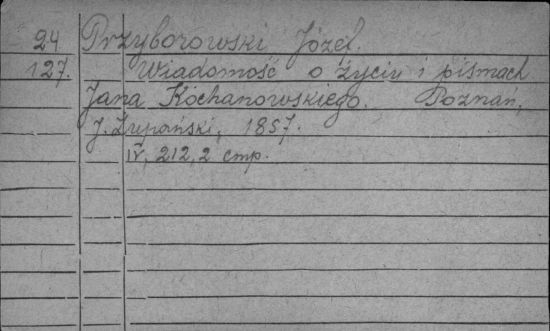 24 Przyborowski Józef.
127. Wiadomość o życiu i pismach
Jana Kochanowskiego. Poznań,
J. Żupański, 1857.
IV, 212, 2 стр.